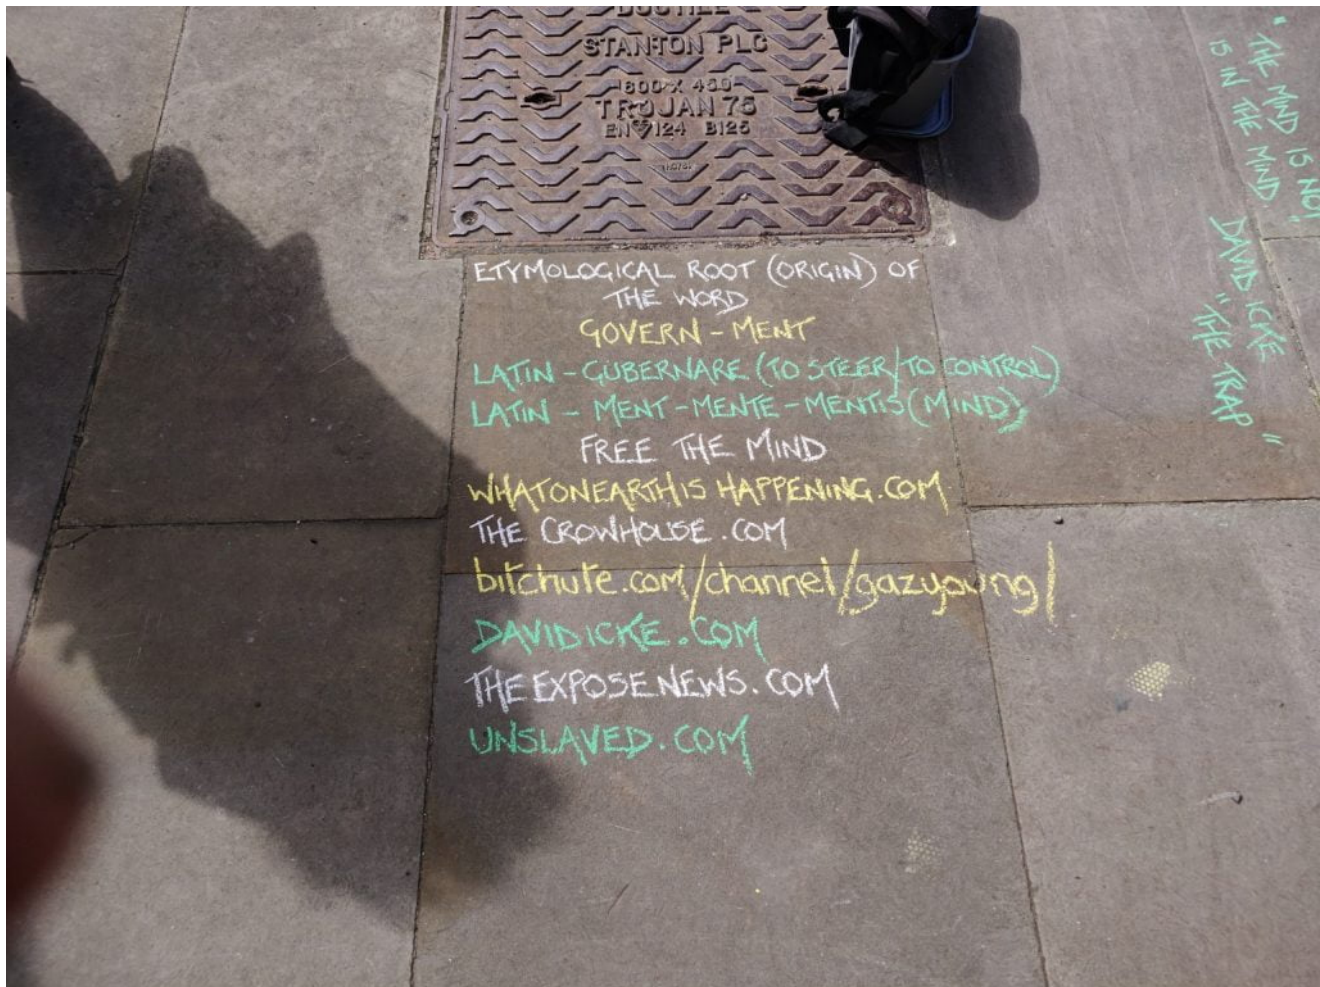 DUCTILE
STANTON PLC
600 X 450
TROJAN 75
EN 124 B125
ETYMOLOGICAL ROOT (ORIGIN) OF
THE WORD
GOVERN - MENT
LATIN - GUBERNARE (TO STEER/TO CONTROL)
LATIN - MENT - MENTE - MENTIS (MIND)
FREE THE MIND
WHATONEARTHIS HAPPENING.COM
THE CROWHOUSE.COM
bitchute.com/channel/gazyoung/
DAVIDICKE.COM
THEEXPOSENEWS.COM
UNSLAVED.COM
"THE MIND IS NOT
IS IN THE MIND"
DAVID ICKE
"THE TRAP"